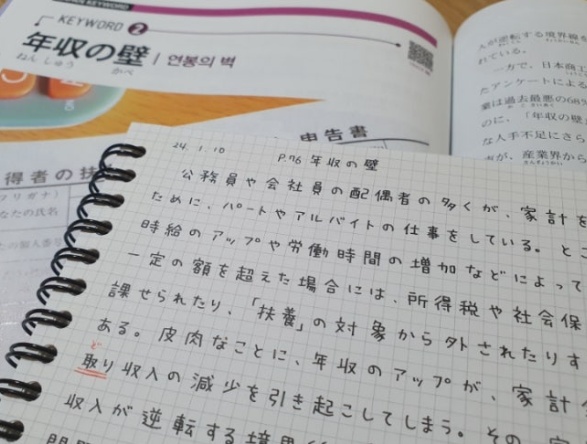 KEYWORD 2
年収の壁 / 연봉의 벽
ねん しゅう かべ
申告書
得者の扶
フリガナ)
なたの氏名
が逆転する境界線を
れている。
一方で、日本商工
たアンケートによる
業は過去最悪の68
のに、「年収の壁
な人手不足にさら
が、産業界から
24. 1. 10
P.76 年収の壁
公務員や会社員の配偶者の多くが、家計を
ために、パートやアルバイトの仕事をしている。とこ
時給のアップや労働時間の増加などによって
一定の額を超えた場合には、所得税や社会保
課せられたり、「扶養」の対象から外されたりす
ある。皮肉なことに、年収のアップが、家計
ど
取り収入の減少を引き起こしてしまう。その
収入が逆転する境界